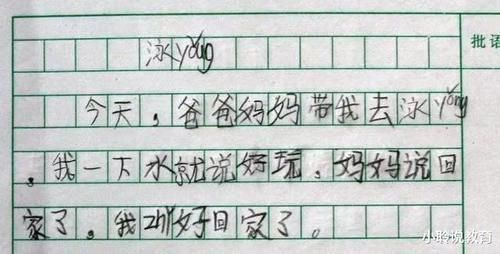 批语
泳yǒng
今天，爸爸妈妈带我去泳yǒng
。我一下水就说好玩，妈妈说回
家了。我zhǐ好回家了。
小聆说教育